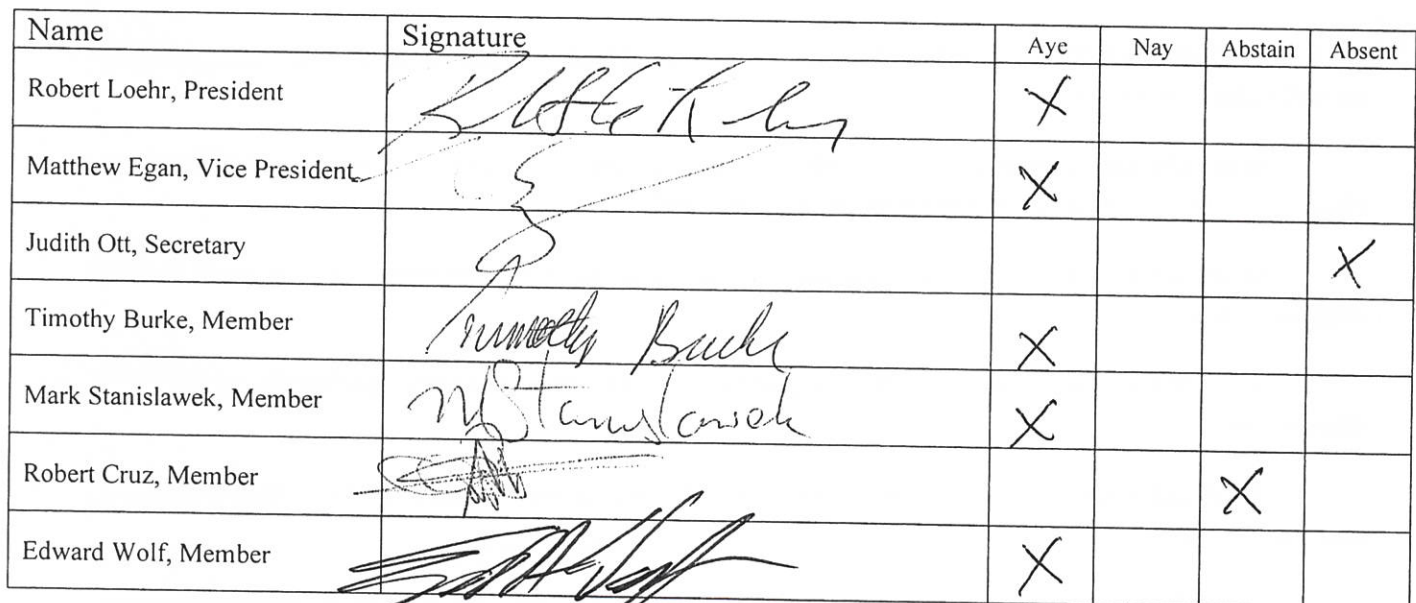 Name Signature Aye Nay Abstain Absent
Robert Loehr, President X
Matthew Egan, Vice President X
Judith Ott, Secretary X
Timothy Burke, Member Timothy Burke X
Mark Stanislawek, Member M Stanislawek X
Robert Cruz, Member X
Edward Wolf, Member X